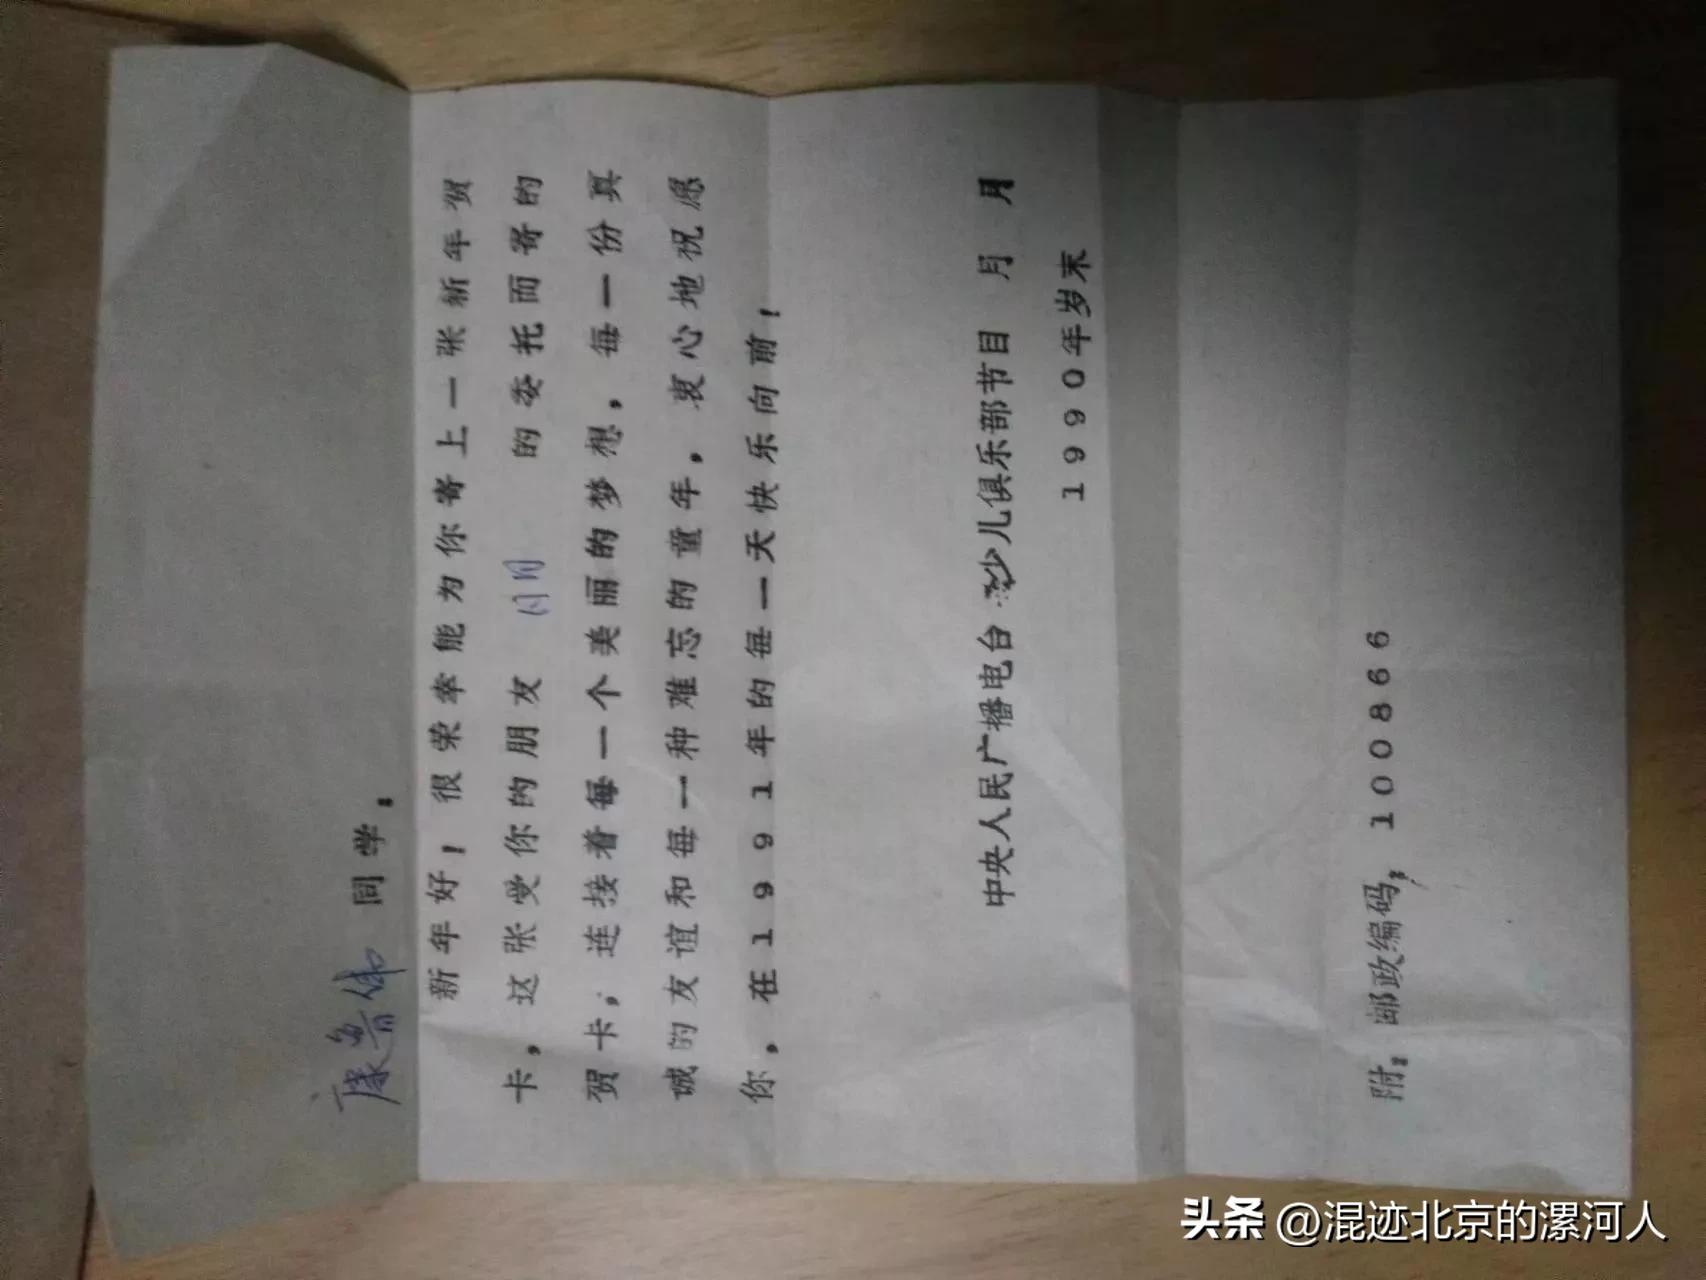 康鲁伟 同学:
新年好!很荣幸能为你寄上一张新年贺
卡,这张受你的朋友 月月 的委托而寄的
贺卡,连接着每一个美丽的梦想,每一份真
诚的友谊和每一种难忘的童年,衷心地祝愿
你,在1991年的每一天快乐向前!
中央人民广播电台 少儿俱乐部节目 月 月
1990年岁末
附:邮政编码:100866
头条 @混迹北京的漯河人